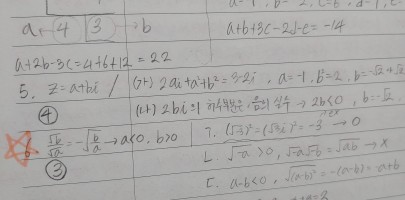 a+b+3c-2d-e=-14
a+2b-3c=4+6+12=22
5. z=a+bi / (가) 2ai+a²+b²=3-2i , a=-1, b²=2,
④ (나) 2bi의 허수부분은 음의 실수 → 2b<0 , b=-√2.
6 √b/√a=-√(b/a) → a<0, b>0 ㄱ. (√-3)²=(√3i)²=-3 → O
③ ㄴ. √-a>0, √-a√b=√ab → X
ㄷ. a-b<0, √(a-b)²=-(a-b)=-a+b